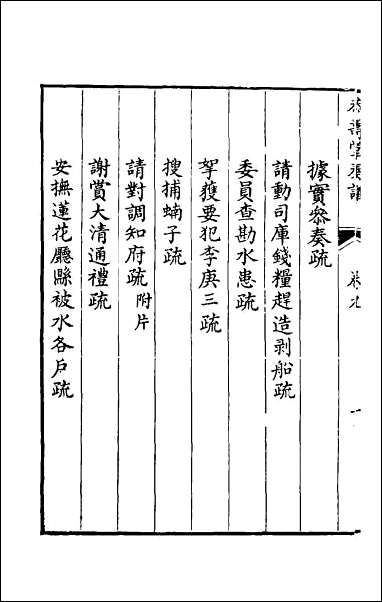 據實叅奏疏
請動司庫錢糧趕造剥船疏
委員查勘水患疏
拏獲要犯李庚三疏
搜捕蝻子疏
請對調知府疏附片
謝賞大清通禮疏
安撫蓮花廳縣被水各戶疏